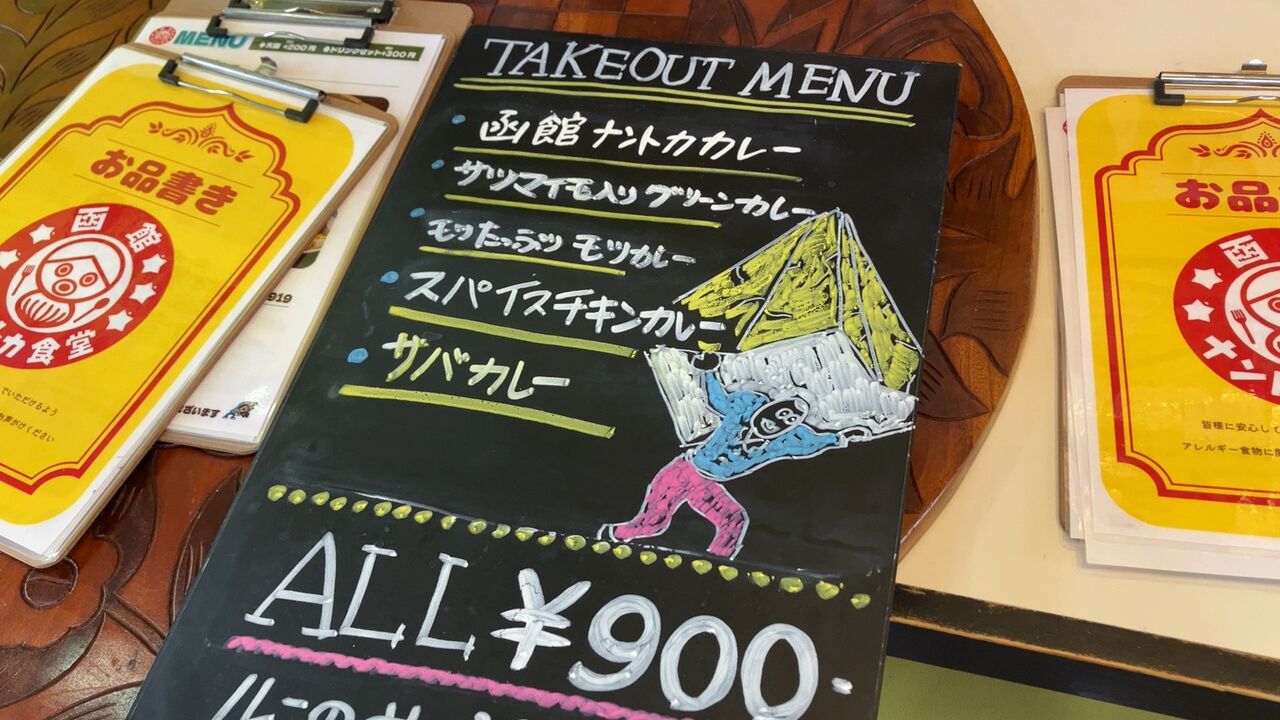 TAKEOUT MENU
函館ナントカカレー
サツマイモ入りグリーンカレー
モツたっぷり モツカレー
スパイスチキンカレー
サバカレー
ALL ¥900-
MENU
大盛 +200円
ドリンクセット +300円
お品書き
函館
カ食堂
919
でいただけるよう
お声がけください
ざいます
お品
函館
ナン
皆様に安心して
アレルギー食物に関